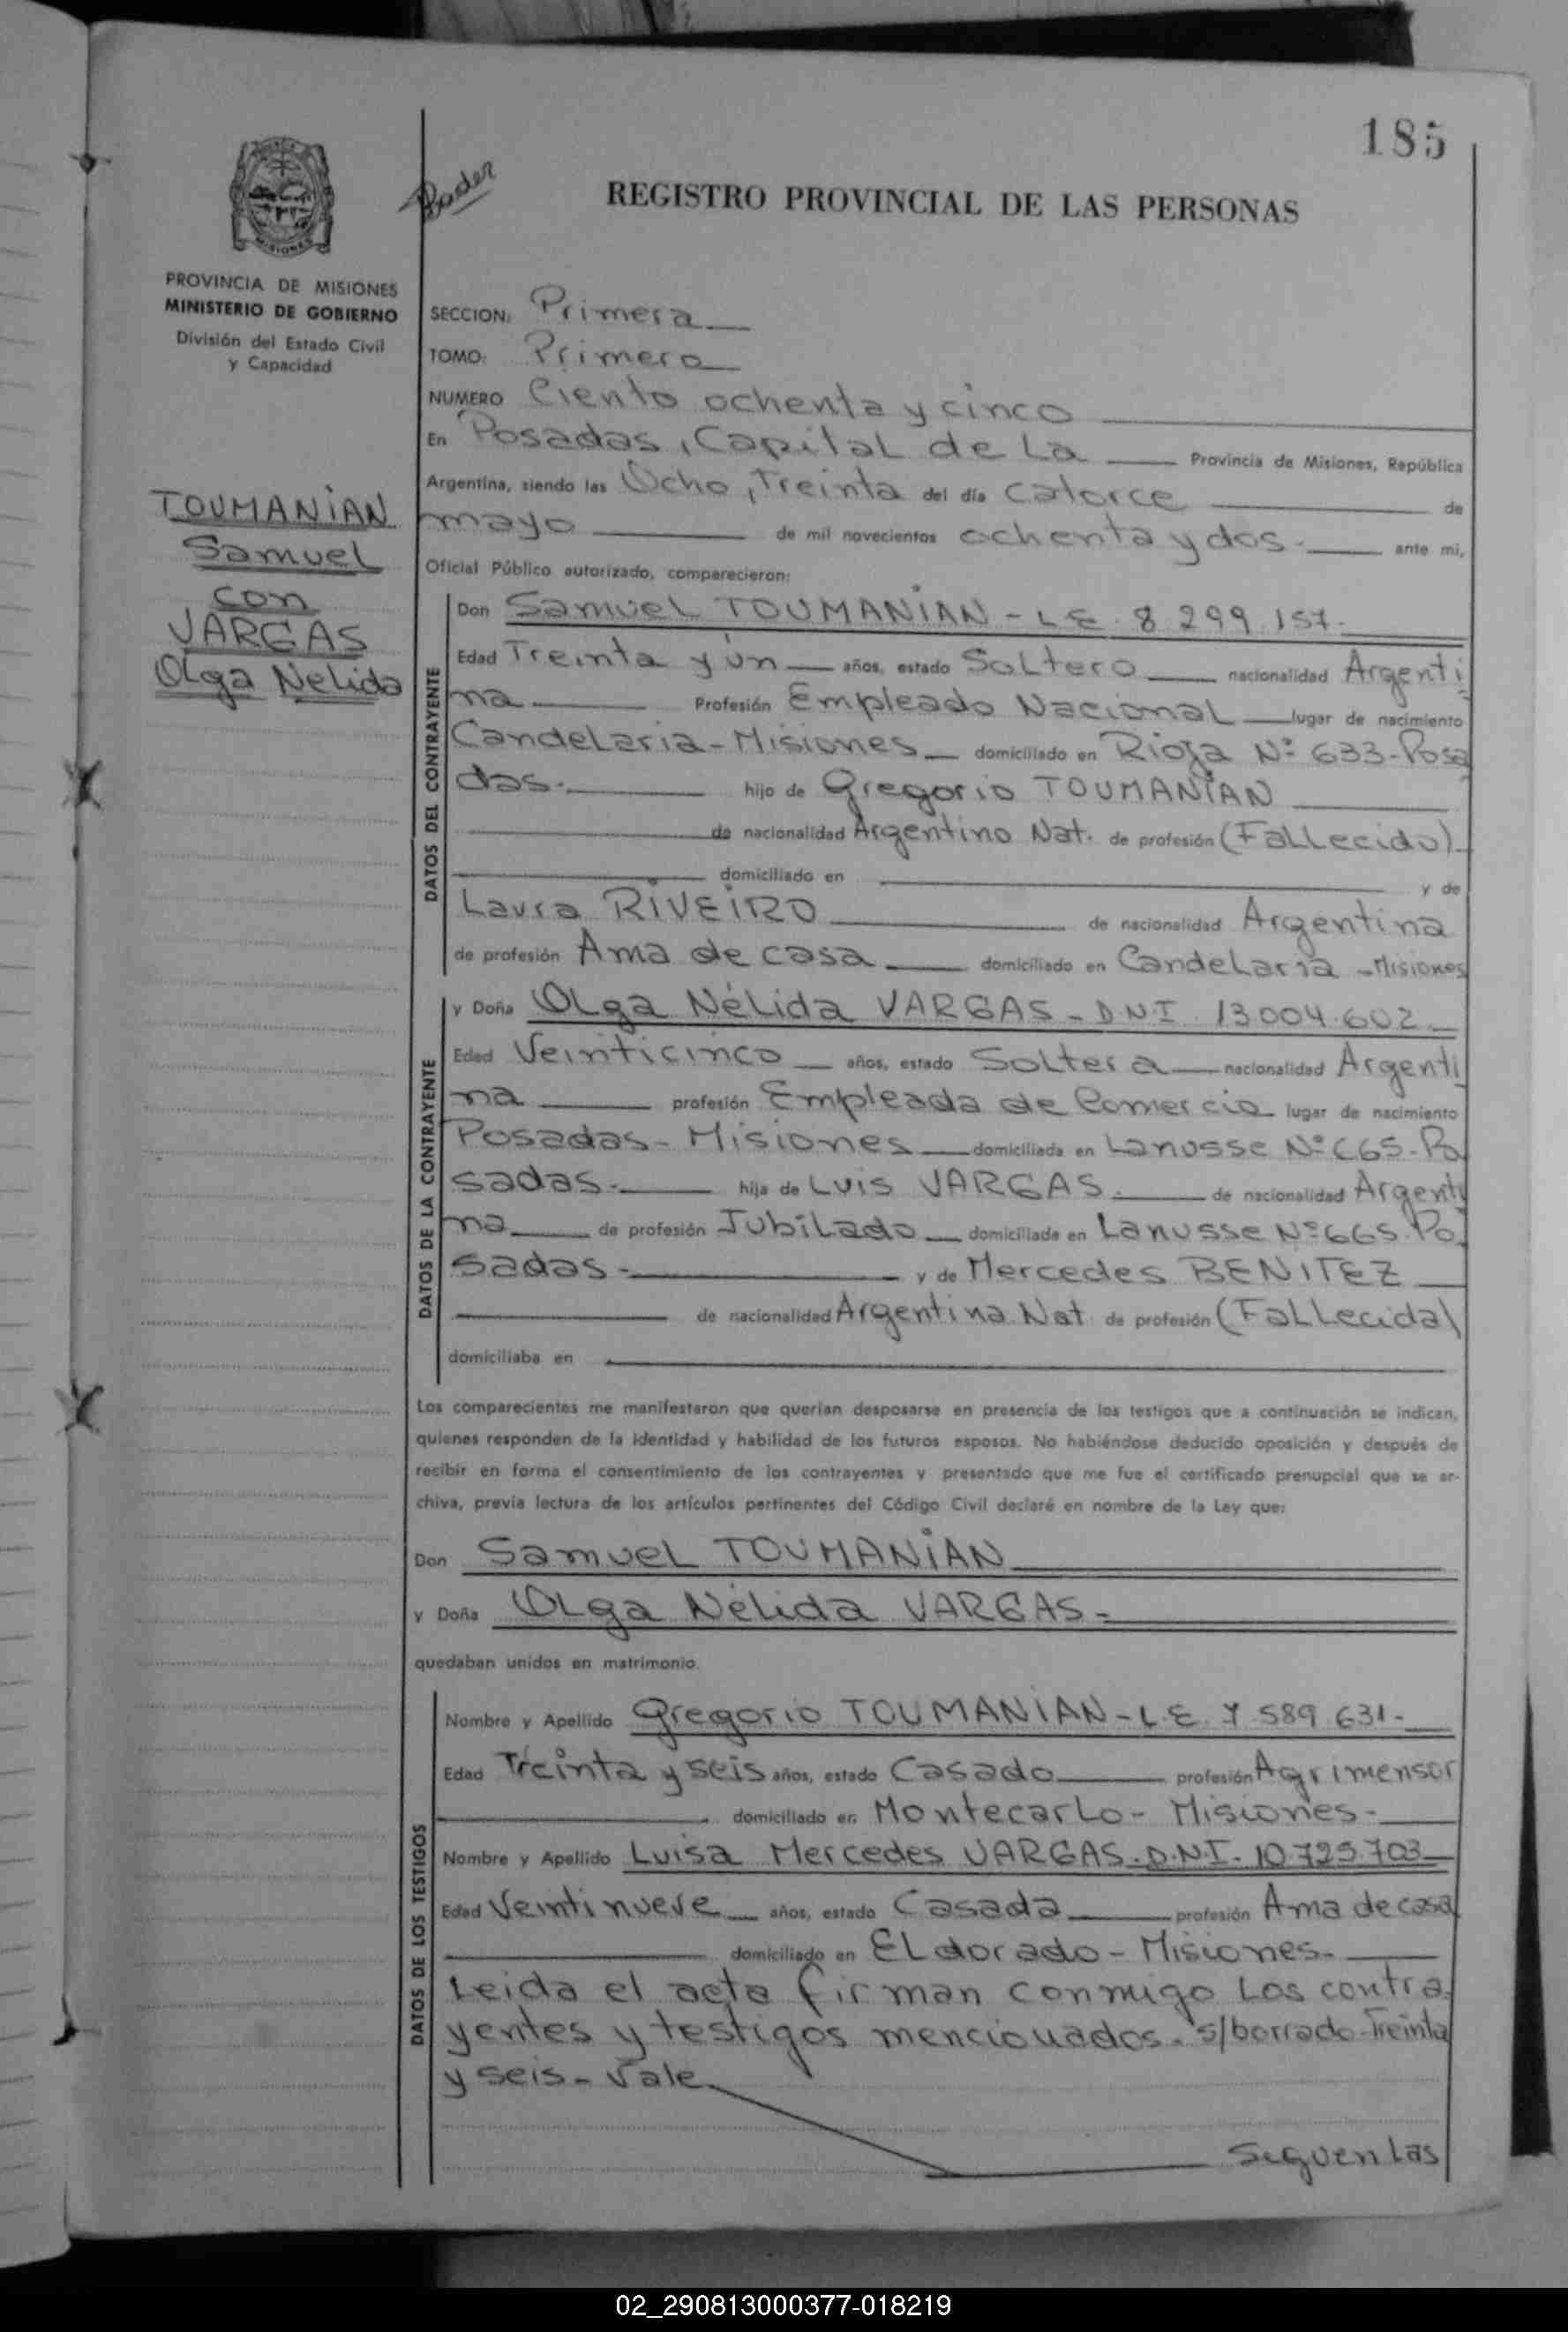 185
Poder
REGISTRO PROVINCIAL DE LAS PERSONAS
MISIONES
PROVINCIA DE MISIONES
MINISTERIO DE GOBIERNO
División del Estado Civil
y Capacidad
TOUMANIAN
Samuel
con
VARGAS
Olga Nelida
SECCION: Primera
TOMO: Primero
NUMERO Ciento ochenta y cinco
En Posadas, Capital de La Provincia de Misiones, República
Argentina, siendo las Ocho, Treinta del día catorce de
mayo de mil novecientos ochenta y dos. ante mi,
Oficial Público autorizado, comparecieron:
DATOS DEL CONTRAYENTE
Don Samuel TOUMANIAN - L.E. 8.299.157.
Edad Treinta y un años, estado Soltero nacionalidad Argenti
na Profesión Empleado Nacional lugar de nacimiento
Candelaria - Misiones domiciliado en Rioja Nº 633 - Posa
das. hijo de Gregorio TOUMANIAN
de nacionalidad Argentino Nat. de profesión (Fallecido)
domiciliado en y de
Laura RIVEIRO de nacionalidad Argentina
de profesión Ama de casa domiciliado en Candelaria - Misiones
DATOS DE LA CONTRAYENTE
y Doña Olga Nélida VARGAS - D.N.I. 13.004.602
Edad Veinticinco años, estado Soltera nacionalidad Argenti
na profesión Empleada de Comercio lugar de nacimiento
Posadas - Misiones domiciliada en Lanusse Nº 665 - Po
sadas. hija de Luis VARGAS. de nacionalidad Argenti
na de profesión Jubilado domiciliada en Lanusse Nº 665. Po
sadas - y de Mercedes BENITEZ
de nacionalidad Argentina Nat. de profesión (Fallecida)
domiciliaba en
Los comparecientes me manifestaron que querían desposarse en presencia de los testigos que a continuación se indican,
quienes responden de la identidad y habilidad de los futuros esposos. No habiéndose deducido oposición y después de
recibir en forma el consentimiento de los contrayentes y presentado que me fue el certificado prenupcial que se ar-
chiva, previa lectura de los artículos pertinentes del Código Civil declaré en nombre de la Ley que:
Don Samuel TOUMANIAN
y Doña Olga Nélida VARGAS -
quedaban unidos en matrimonio.
DATOS DE LOS TESTIGOS
Nombre y Apellido Gregorio TOUMANIAN - L.E. 7.589.631 -
Edad Treinta y seis años, estado Casado profesión Agrimensor
domiciliado en Montecarlo - Misiones -
Nombre y Apellido Luisa Mercedes VARGAS. D.N.I. 10.725.703
Edad Veintinueve años, estado Casada profesión Ama de casa
domiciliado en Eldorado - Misiones.
Leida el acta firman conmigo Los contra
yentes y testigos mencionados. s/borrado - Treinta
y seis - Vale
Siguen Las
02_290813000377-018219